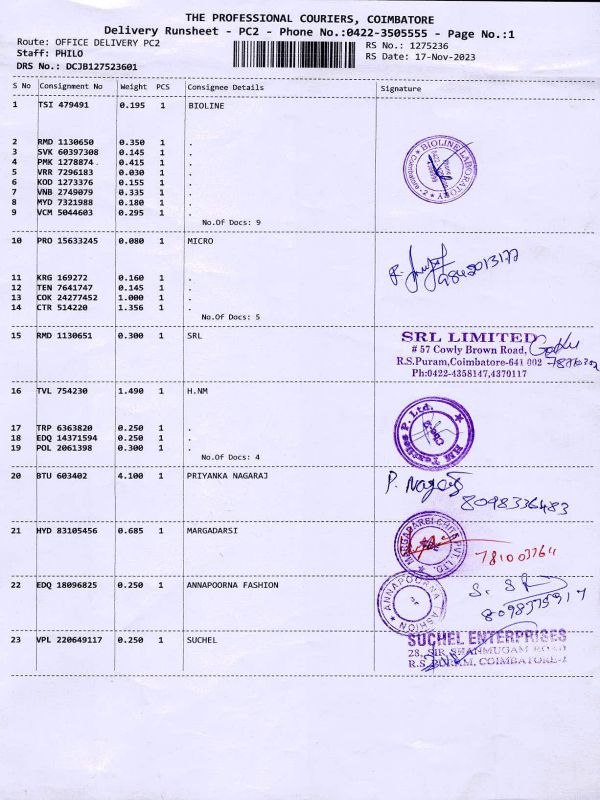 THE PROFESSIONAL COURIERS, COIMBATORE
Delivery Runsheet - PC2 - Phone No.:0422-3505555 - Page No.:1
Route: OFFICE DELIVERY PC2
RS No.: 1275236
Staff: PHILO
RS Date: 17-Nov-2023
DRS No.: DCJB127523601
S No Consignment No Weight PCS Consignee Details Signature
1 TSI 479491 0.195 1 BIOLINE
2 RMD 1130650 0.350 1 .
3 SVK 60397308 0.145 1 .
4 PMK 1278874 0.415 1 .
5 VRR 7296183 0.030 1 .
6 KOD 1273376 0.155 1 .
7 VNB 2749079 0.335 1 .
8 MYD 7321988 0.180 1 .
9 VCM 5044603 0.295 1 .
No.Of Docs: 9
BIOLINE LABORATORY
Coimbatore - 2
10 PRO 15633245 0.080 1 MICRO
9842013177
11 KRG 169272 0.160 1 .
12 TEN 7641747 0.145 1 .
13 COK 24277452 1.000 1 .
14 CTR 514220 1.356 1 .
No.Of Docs: 5
15 RMD 1130651 0.300 1 SRL
SRL LIMITED
# 57 Cowly Brown Road,
R.S.Puram,Coimbatore-641 002
Ph:0422-4358147,4370117
16 TVL 754230 1.490 1 H.NM
17 TRP 6363820 0.250 1 .
18 EDQ 14371594 0.250 1 .
19 POL 2061398 0.300 1 .
No.Of Docs: 4
20 BTU 603402 4.100 1 PRIYANKA NAGARAJ
P. Nagaraj
8098336483
21 HYD 83105456 0.685 1 MARGADARSI
MARGADARSI CHITS PVT. LTD.
22 EDQ 18096825 0.250 1 ANNAPOORNA FASHION
ANNAPOORNA FASHION
23 VPL 220649117 0.250 1 SUCHEL
SUCHEL ENTERPRISES
28, SIR SHANMUGAM ROAD
R.S. PURAM, COIMBATORE-2